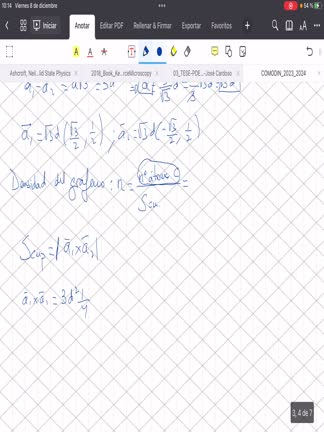 10:14 Viernes 8 de diciembre
54 %
Iniciar Anotar Editar PDF Rellenar & Firmar Exportar Favoritos
Ashcroft, Neil...lid State Physics 2016_Book_Ke...rceMicroscopy 03_TESE-PDE...-José Cardoso COMODIN_2023_2024
a⃗₁ = √3d (√3/2, 1/2) ; a⃗₂ = √3d (-√3/2, 1/2)
Densidad del grafeno: n = nº átomos C / Scu =
Scup = |a⃗₁ x a⃗₂|
a⃗₁ x a⃗₂ = 3d² 1/4
3, 4 de 7